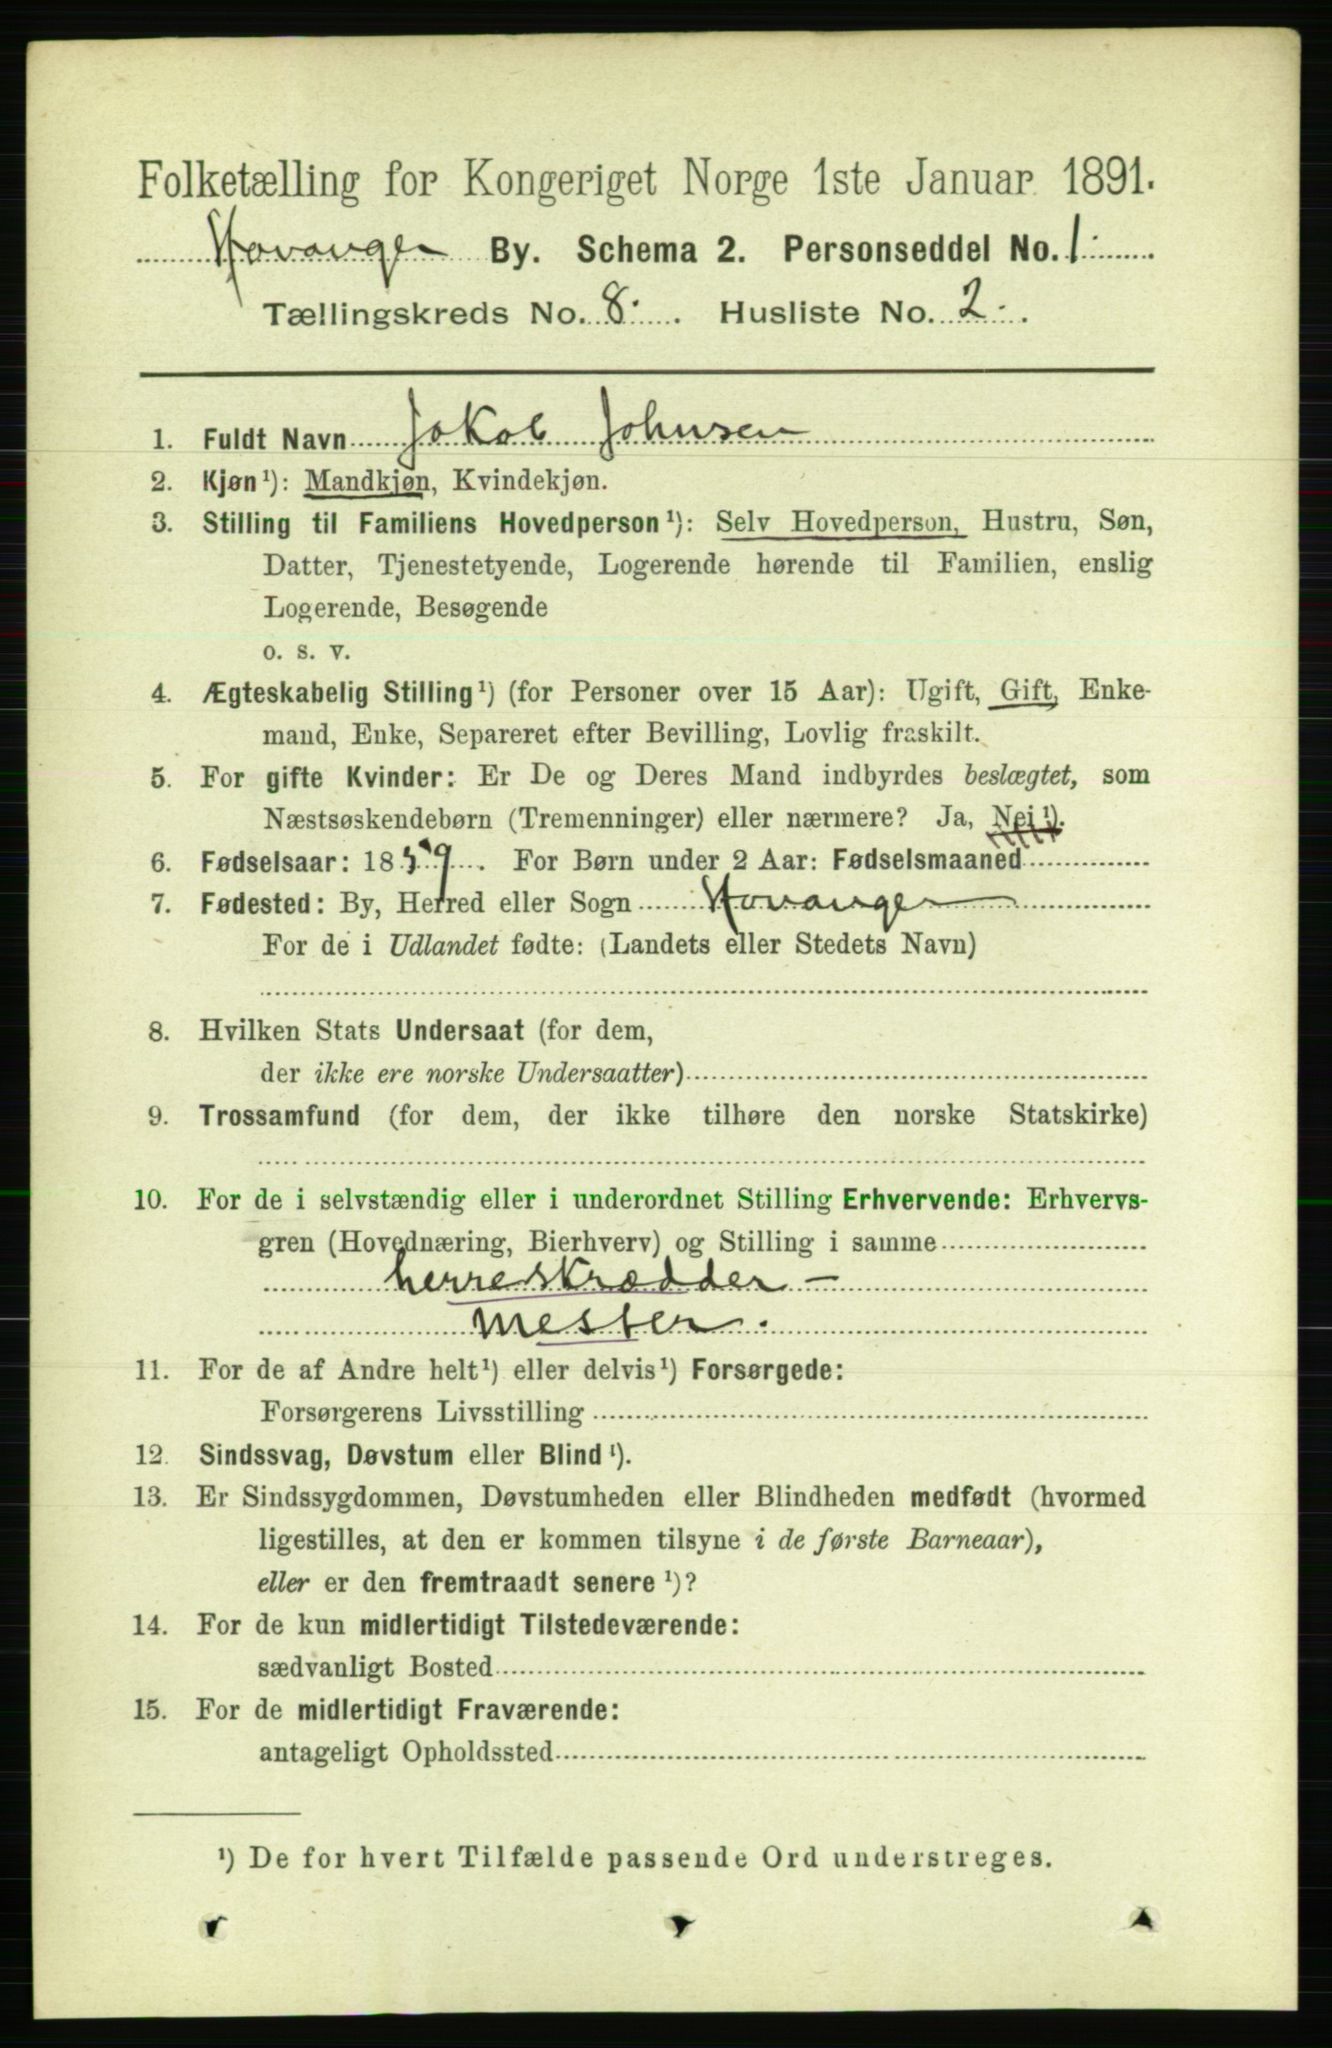 Folketælling for Kongeriget Norge 1ste Januar 1891.
Stavanger By. Schema 2. Personseddel No. 1.
Tællingskreds No. 8. Husliste No. 2.
1. Fuldt Navn Jakob Johnsen
2. Kjøn¹): Mandkjøn, Kvindekjøn.
3. Stilling til Familiens Hovedperson¹): Selv Hovedperson, Hustru, Søn,
Datter, Tjenestetyende, Logerende hørende til Familien, enslig
Logerende, Besøgende
o. s. v.
4. Ægteskabelig Stilling¹) (for Personer over 15 Aar): Ugift, Gift, Enke-
mand, Enke, Separeret efter Bevilling, Lovlig fraskilt.
5. For gifte Kvinder: Er De og Deres Mand indbyrdes beslægtet, som
Næstsøskendebørn (Tremenninger) eller nærmere? Ja, Nei¹).
6. Fødselsaar: 1859. For Børn under 2 Aar: Fødselsmaaned
7. Fødested: By, Herred eller Sogn Stavanger
For de i Udlandet fødte: (Landets eller Stedets Navn)
8. Hvilken Stats Undersaat (for dem,
der ikke ere norske Undersaatter)
9. Trossamfund (for dem, der ikke tilhøre den norske Statskirke)
10. For de i selvstændig eller i underordnet Stilling Erhvervende: Erhvervs-
gren (Hovednæring, Bierhverv) og Stilling i samme
herreskrædder -
mester.
11. For de af Andre helt¹) eller delvis¹) Forsørgede:
Forsørgerens Livsstilling
12. Sindssvag, Døvstum eller Blind¹).
13. Er Sindssygdommen, Døvstumheden eller Blindheden medfødt (hvormed
ligestilles, at den er kommen tilsyne i de første Barneaar),
eller er den fremtraadt senere¹)?
14. For de kun midlertidigt Tilstedeværende:
sædvanligt Bosted
15. For de midlertidigt Fraværende:
antageligt Opholdssted
¹) De for hvert Tilfælde passende Ord understreges.